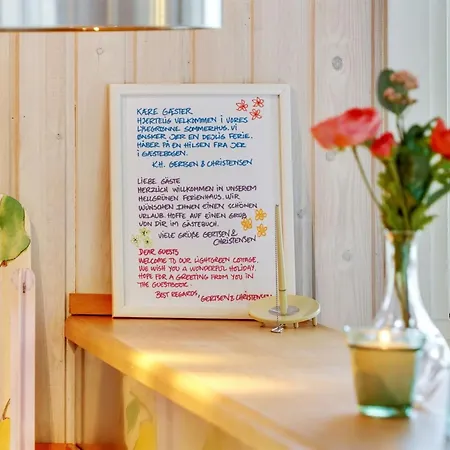 KÆRE GÆSTER
HJERTELIG VELKOMMEN I VORES
LYSEGRØNNE SOMMERHUS. VI
ØNSKER JER EN DEJLIG FERIE.
HÅBER PÅ EN HILSEN FRA JER
I GÆSTEBOGEN.
K.H. GERTSEN & CHRISTENSEN
LIEBE GÄSTE
HERZLICH WILLKOMMEN IN UNSEREM
HELLGRÜNEN FERIENHAUS. WIR
WÜNSCHEN IHNEN EINEN SCHÖNEN
URLAUB. HOFFE AUF EINEN GRUß
VON DIR IM GÄSTEBUCH.
VIELE GRÜßE GERTSEN &
CHRISTENSEN
DEAR GUESTS
WELCOME TO OUR LIGHTGREEN COTAGE.
WE WISH YOU A WONDERFUL HOLIDAY.
HOPE FOR A GREETING FROM YOU IN
THE GUESTBOOK.
BEST REGARDS, GERTSEN & CHRISTENSEN